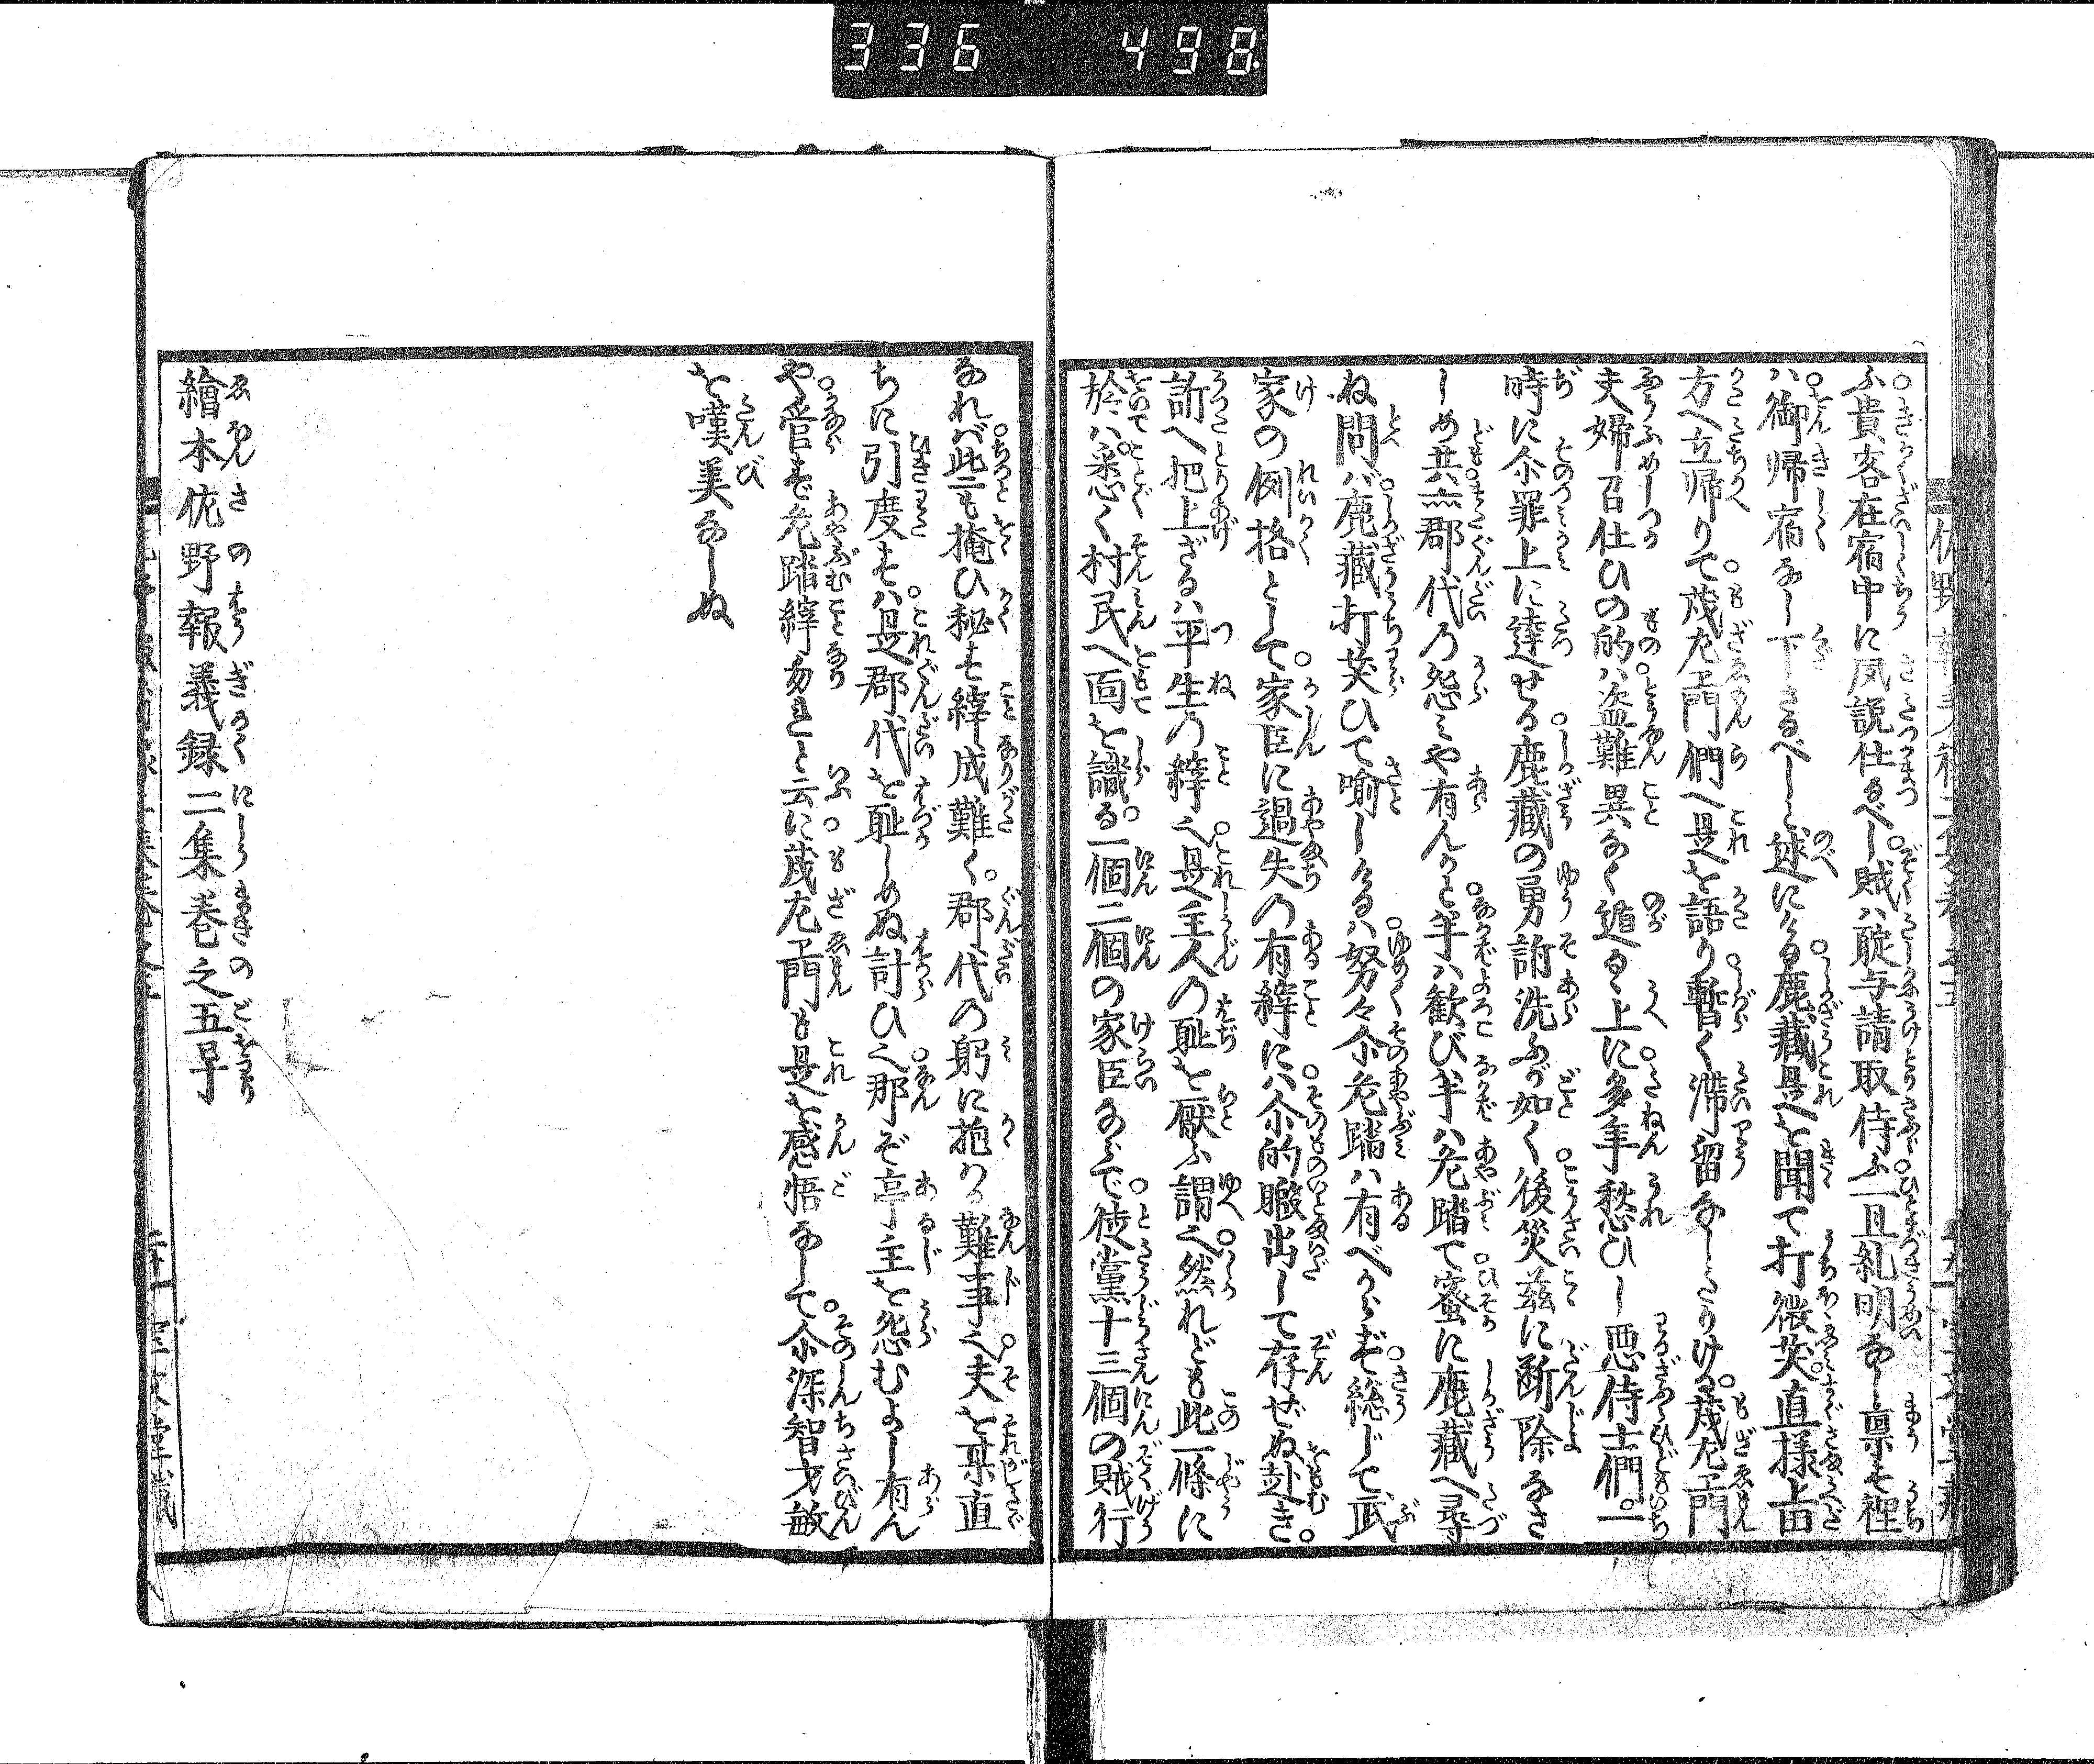 336 498
ふ貴客在宿中に風説仕るべし賊ハ聢与請取侍ふ一旦糺明なし禀す裡
ハ御帰宿なし下さるべしと述にける鹿藏是を聞て打微笑直様上田
方へ立帰りて茂左エ門們へ是を語り暫く滞留なしたりける茂左エ門
夫婦召仕ひの的ハ盗難異なく遁るゝ上に多年愁ひし悪侍士們一
時に尓罪上に達せる鹿藏の勇訴洗ふが如く後災茲に断除なさ
しめ共亦郡代の怨ミや有んかと半ハ歓び半ハ危踏て蜜に鹿藏へ尋
ね問バ鹿藏打笑ひて喩しけるハ努々尓危踏ハ有べからず総じて武
家の例格として家臣に過失の有縡にハ尓的暇出して存ぜぬ赴き
訴へ把上ざるハ平生の縡也是主人の耻を厭ふ謂也然れども此一條に
於てハ悉く村民へ面を識る一個二個の家臣ならで徒黨十三個の賊行
なれバ此些も掩ひ秘す縡成難く郡代の躬に抱る難事也夫を某直
ちに引度すハ是郡代を耻しめぬ計ひ也那ぞ亭主を怨むよし有ん
や必ず危踏縡勿れと云に茂左エ門も是を感悟なして尓深智才敏
を嘆美なしぬ
繪本佐野報義録二集巻之五早